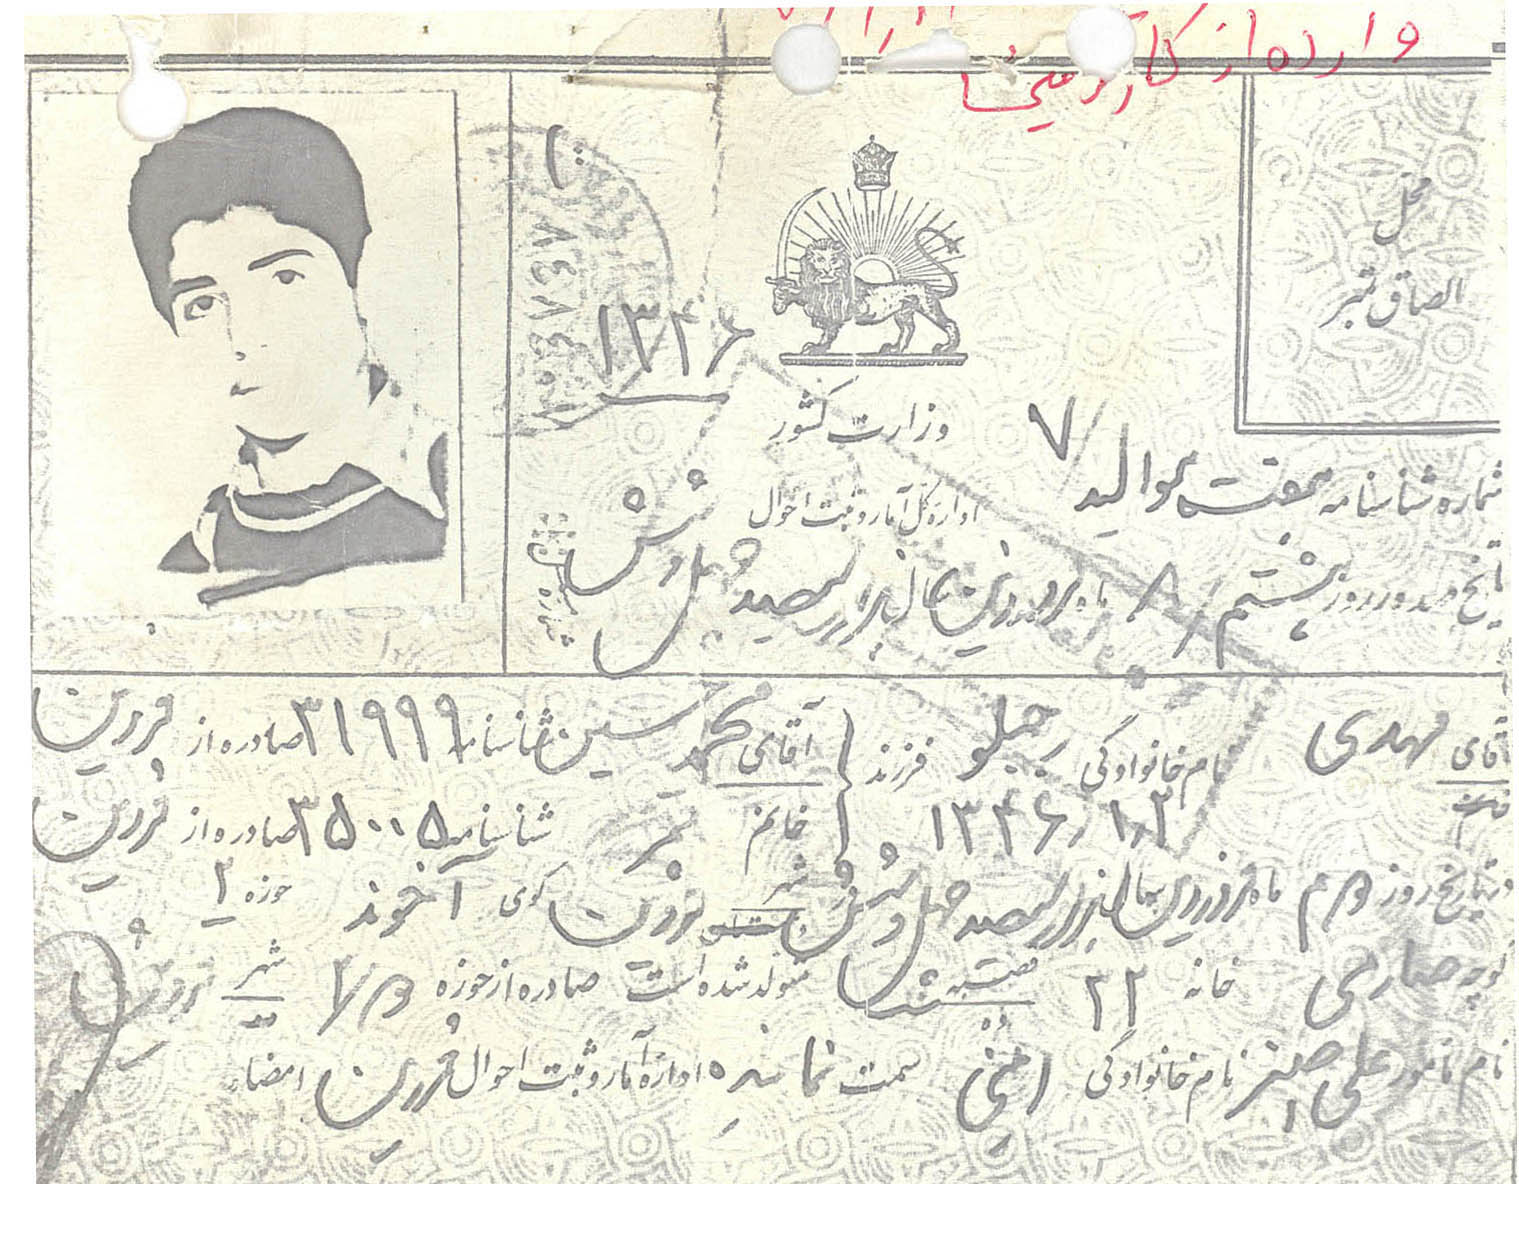 وارده از
محل
الصاق تمبر
۱۳۴۶
وزارت کشور
اداره کل آمار و ثبت احوال
۷
شماره شناسنامه هفت موالید
تاریخ صدور روز هشتم ۸ ماه فروردین سال هزار و سیصد و چهل و شش
آقای مهدی نام خانوادگی رجبلو فرزند آقای محمد حسین شناسنامه ۳۱۹۹۹ صادره از قزوین
۱۳۴۶/۱/۲ خانم شناسنامه ۳۵۰۰۵ صادره از قزوین
در تاریخ روز دوم ماه فروردین سال هزار و سیصد و چهل و شش در شهر قزوین کوی آخوند حوزه ۲
کوچه صاری خانه ۲۲ متولد شده است صادره از حوزه ۲ شهر قزوین
نام مامور علی اصغر نام خانوادگی امینی سمت نماینده اداره آمار و ثبت احوال قزوین امضاء